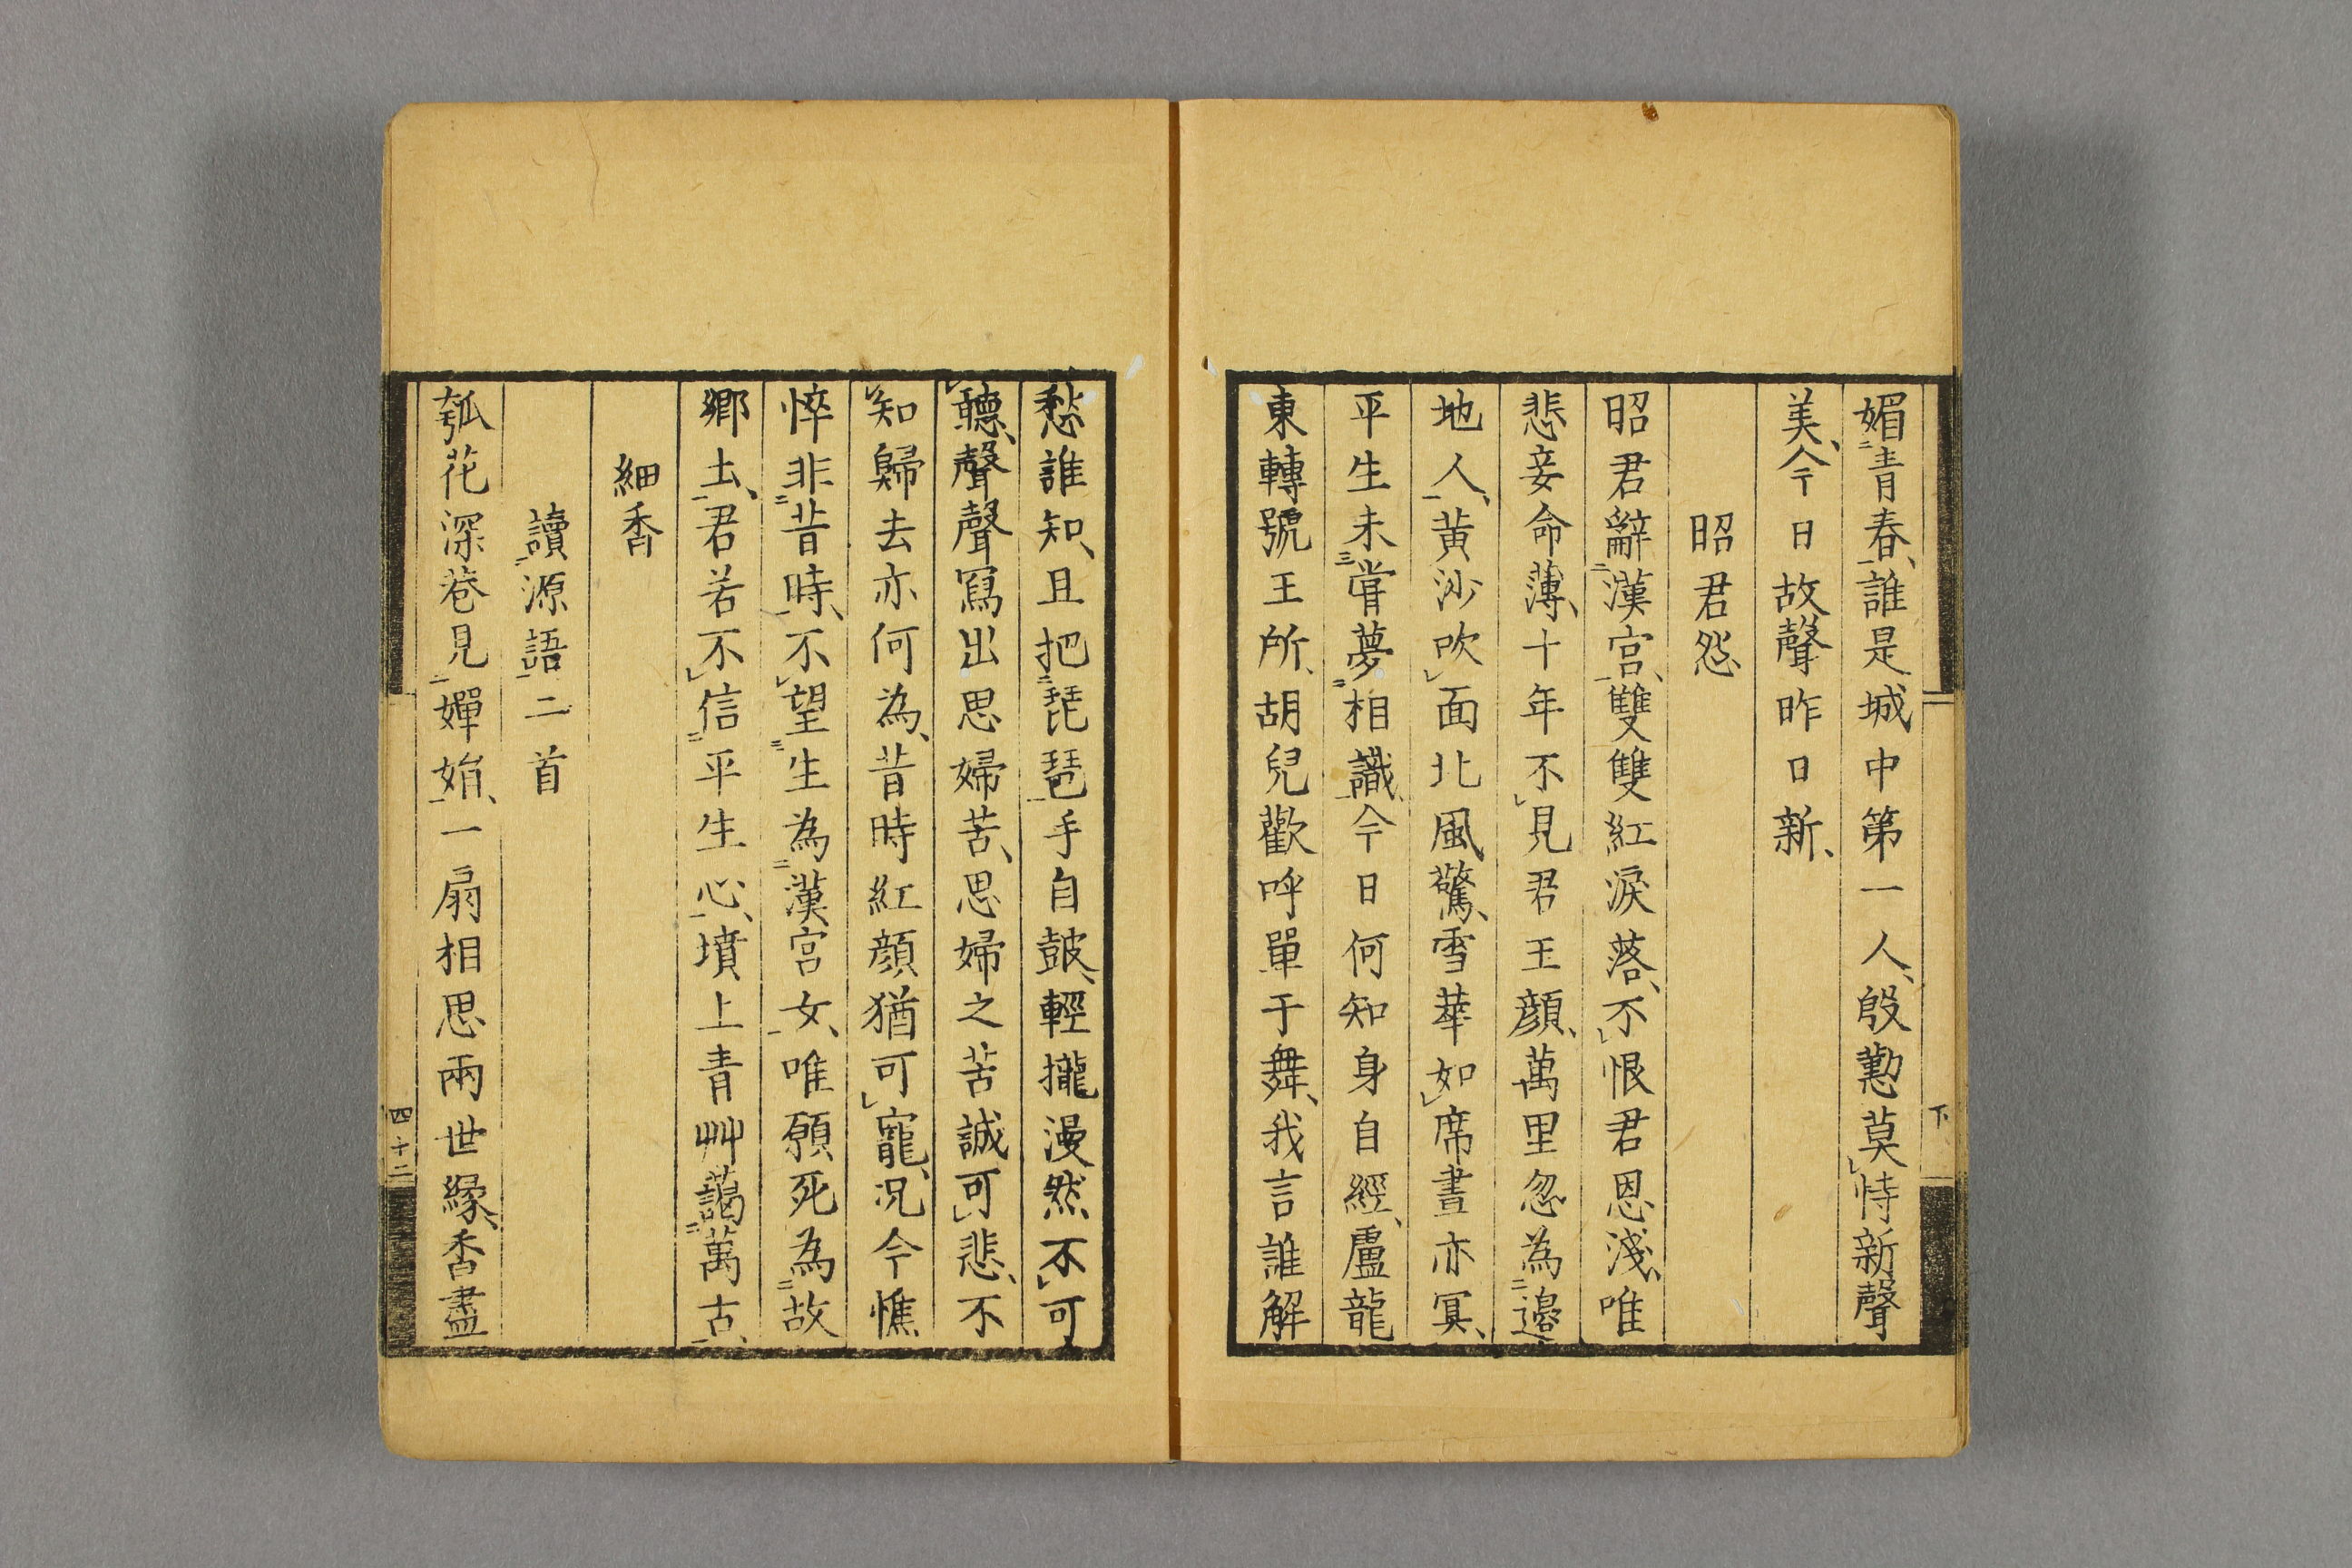 下
媚青春、誰是城中第一人、殷懃莫恃新聲
美、今日故聲昨日新、
昭君怨
昭君辭漢宮、雙雙紅淚落、不恨君恩淺、唯
悲妾命薄、十年不見君王顏、萬里忽為邊
地人、黃沙吹面北風驚、雪華如席晝亦冥、
平生未嘗夢相識、今日何知身自經、盧龍
東轉號王所、胡兒歡呼單于舞、我言誰解
愁誰知、且把琵琶手自鼓、輕攏漫然不可
聽、聲聲寫出思婦苦、思婦之苦誠可悲、不
知歸去亦何為、昔時紅顏猶可寵、況今憔
悴非昔時、不望生為漢宮女、唯願死為故
鄉土、君若不信平生心、墳上青艸藹萬古、
細香
讀源語二首
瓠花深巷見嬋娟、一扇相思兩世緣、香盡
四十二